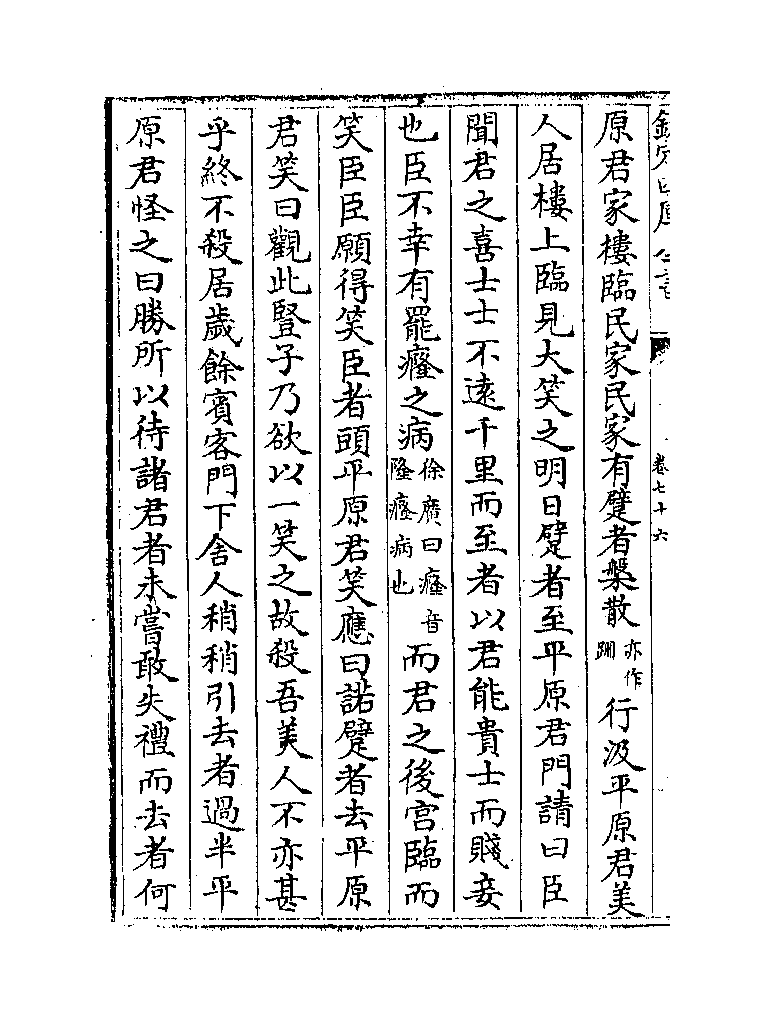 卷七十六
原君家樓臨民家民家有躄者槃散亦作跚行汲平原君美
人居樓上臨見大笑之明日躄者至平原君門請曰臣
聞君之喜士士不遠千里而至者以君能貴士而賤妾
也臣不幸有罷癃之病徐廣曰癃音隆癃病也而君之後宮臨而
笑臣臣願得笑臣者頭平原君笑應曰諾躄者去平原
君笑曰觀此豎子乃欲以一笑之故殺吾美人不亦甚
乎終不殺居歲餘賓客門下舍人稍稍引去者過半平
原君怪之曰勝所以待諸君者未嘗敢失禮而去者何